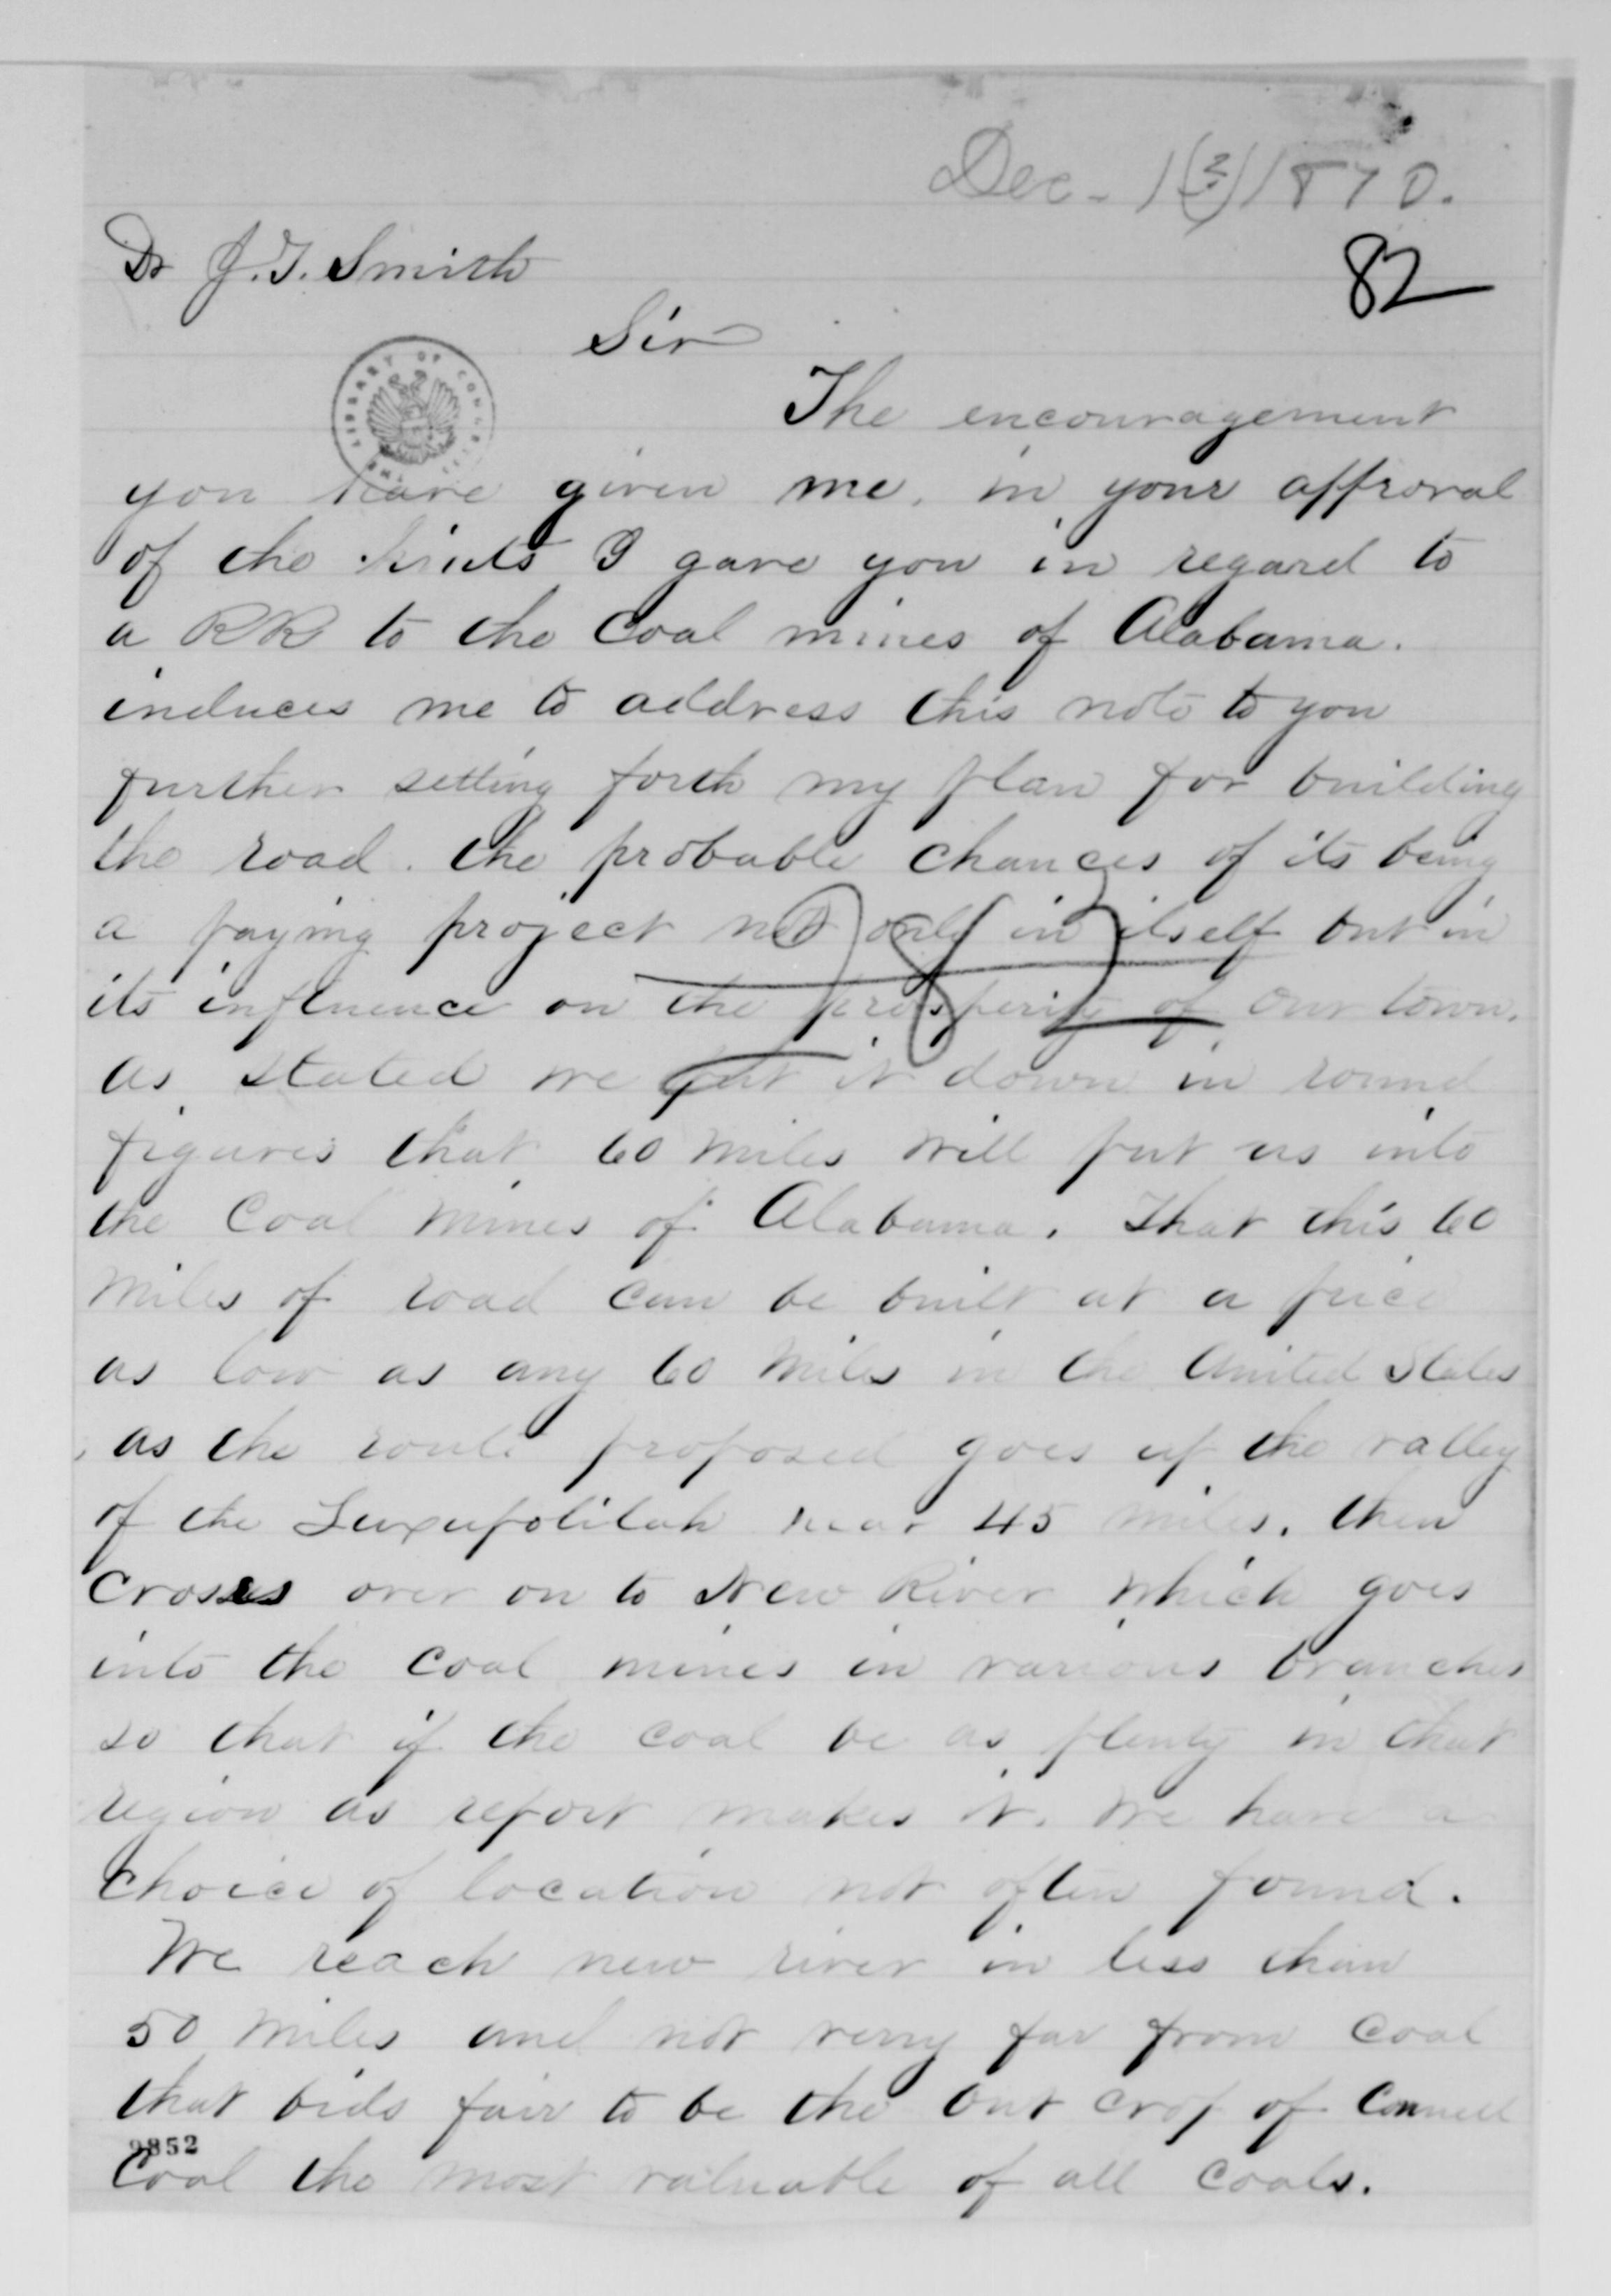 Dec - 1(3)1870.
82
Dr J. T. Smith
Sir
LIBRARY OF CONGRESS
The encouragement
you have given me, in your approval
of the hints I gave you in regard to
a RR to the Coal mines of Alabama.
induces me to address this note to you
further setting forth my plan for building
the road. the probable chances of its being
a paying project not only in itself but in
its influence on the prosperity of our town.
as stated we put it down in round
figures that 60 miles will put us into
the Coal mines of Alabama. That this 60
miles of road can be built at a price
as low as any 60 miles in the United States
as the route proposed goes up the valley
of the Luxupolilah near 45 miles. then
Crosses over on to New River which goes
into the Coal mines in various branches
so that if the coal be as plenty in that
region as report makes it. We have a
choice of location not often found.
We reach new river in less than
50 miles and not very far from Coal
that bids fair to be the out crop of Connell
9852
Coal the most valuable of all Coals.